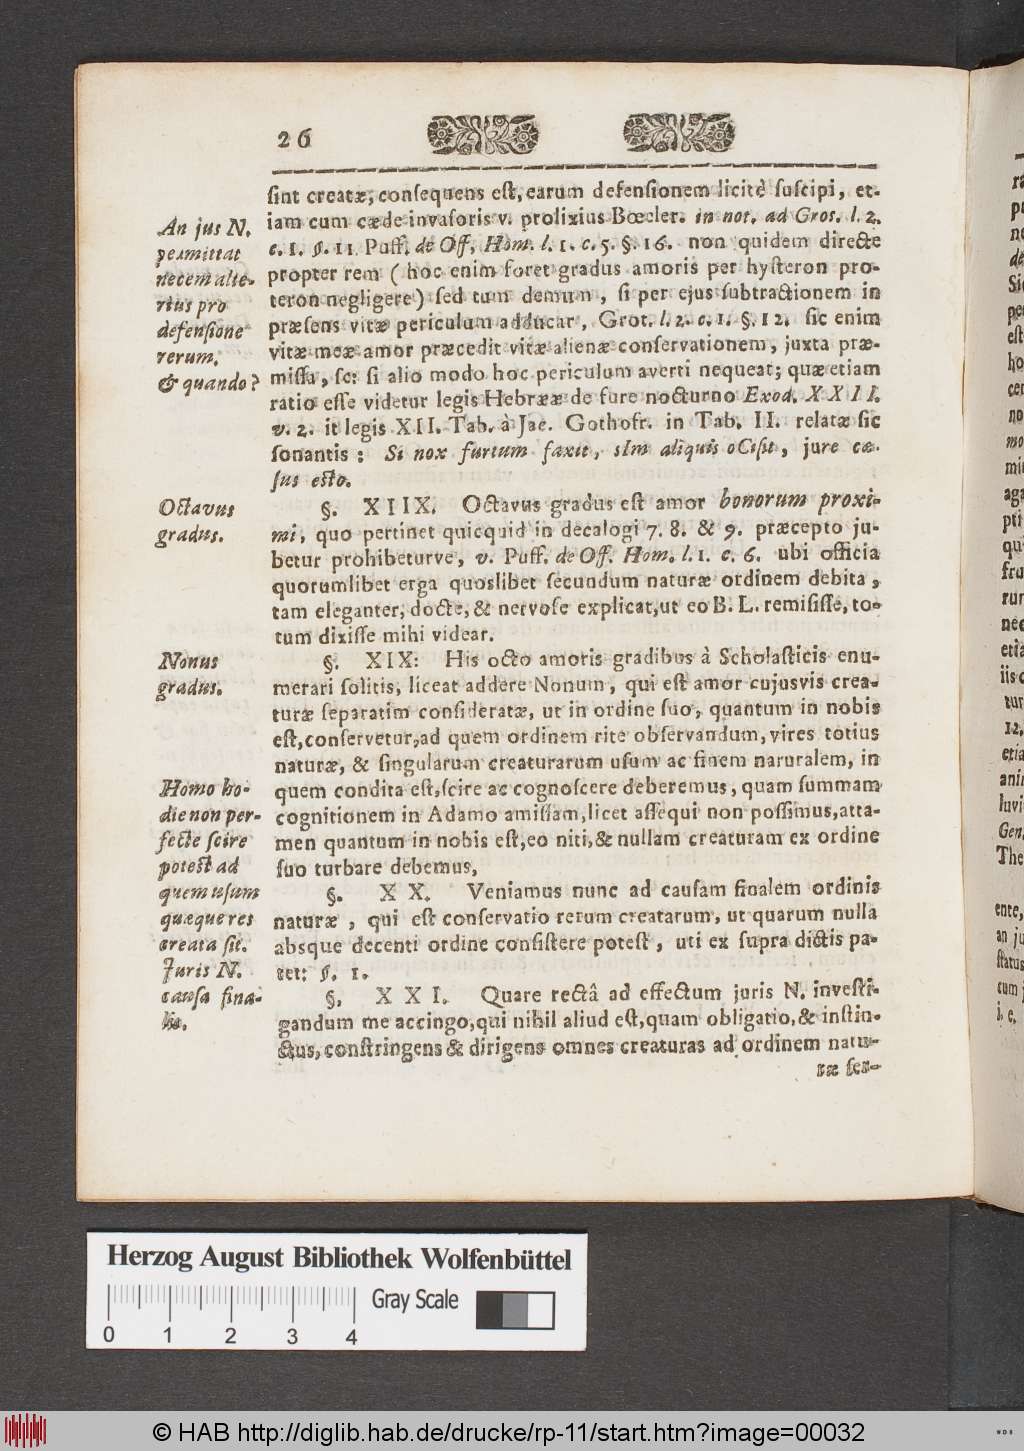 26
ſint creatæ, conſequens eſt, earum defenſionem licitè ſuſcipi, et-
iam cum cæde invaſoris v. prolixius Bœcler. in not. ad Grot. l. 2.
c. 1. §. 11 Puff. de Off. Hom. l. 1. c. 5. §. 16. non quidem directe
propter rem ( hoc enim foret gradus amoris per hyſteron pro-
teron negligere) ſed tum demum, ſi per ejus ſubtractionem in
præſens vitæ periculum adducar, Grot. l. 2. c. 1. §. 12. ſic enim
vitæ meæ amor præcedit vitæ alienæ conſervationem, juxta præ-
miſſa, ſc: ſi alio modo hoc periculum averti nequeat; quæ etiam
ratio eſſe videtur legis Hebrææ de fure nocturno Exod. XXII.
v. 2. it legis XII. Tab. à Jac. Gothofr. in Tab. II. relatæ ſic
ſonantis: Si nox furtum faxit, sIm aliquis oCiſit, jure cæ-
ſus eſto.
An jus N.
permittat
necem alte-
rius pro
defenſione
rerum.
& quando?
§. XIIX. Octavus gradus eſt amor bonorum proxi-
mi, quo pertinet quicquid in decalogi 7. 8. & 9. præcepto ju-
betur prohibeturve, v. Puff. de Off. Hom. l. 1. c. 6. ubi officia
quorumlibet erga quoslibet ſecundum naturæ ordinem debita,
tam eleganter, docte, & nervoſe explicat, ut eo B. L. remiſiſſe, to-
tum dixiſſe mihi videar.
Octavus
gradus.
§. XIX: His octo amoris gradibus à Scholaſticis enu-
merari ſolitis, liceat addere Nonum, qui eſt amor cujusvis crea-
turæ ſeparatim conſideratæ, ut in ordine ſuo, quantum in nobis
eſt, conſervetur, ad quem ordinem rite obſervandum, vires totius
naturæ, & ſingularum creaturarum uſum ac finem naruralem, in
quem condita eſt, ſcire ac cognoſcere deberemus, quam ſummam
cognitionem in Adamo amiſſam, licet aſſequi non poſſimus, atta-
men quantum in nobis eſt, eo niti, & nullam creaturam ex ordine
ſuo turbare debemus,
Nonus
gradus.
Homo ho-
die non per-
fecte ſcire
poteſt ad
quem uſum
quæque res
creata ſit.
§. XX. Veniamus nunc ad cauſam finalem ordinis
naturæ, qui eſt conſervatio rerum creatarum, ut quarum nulla
absque decenti ordine conſiſtere poteſt, uti ex ſupra dictis pa-
tet: §. 1.
Juris N.
cauſa fina-
lis.
§. XXI. Quare rectâ ad effectum juris N. inveſti-
gandum me accingo, qui nihil aliud eſt, quam obligatio, & inſtin-
ctus, conſtringens & dirigens omnes creaturas ad ordinem natu-
ræ ſer-
Herzog August Bibliothek Wolfenbüttel
Gray Scale
0 1 2 3 4
© HAB http://diglib.hab.de/drucke/rp-11/start.htm?image=00032